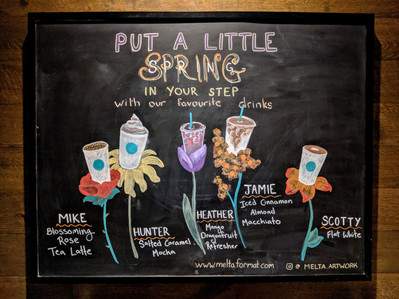 PUT A LITTLE
SPRING
IN YOUR STEP
with our favourite drinks
MIKE
Blossoming
Rose
Tea Latte
HUNTER
Salted Caramel
Mocha
HEATHER
Mango
Dragonfruit
Refresher
JAMIE
Iced Cinnamon
Almond
Macchiato
SCOTTY
Flat White
www.meltaformat.com
@ MELTA.ARTWORK